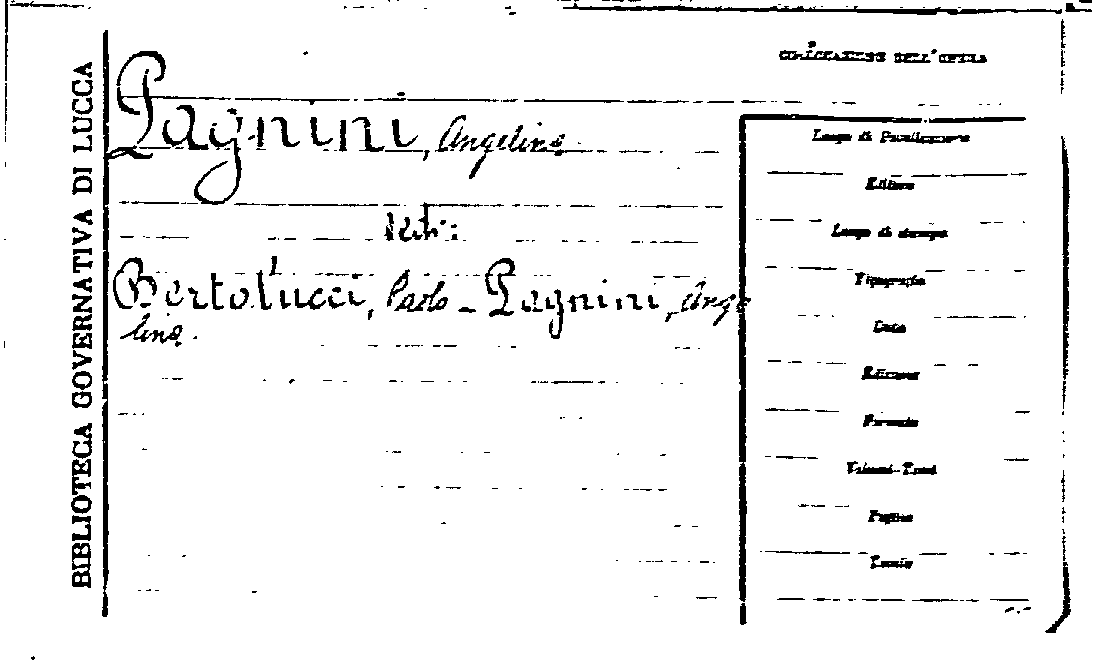 BIBLIOTECA GOVERNATIVA DI LUCCA
Pagnini, Angelina
Vedi:
Bertolucci, Paolo - Pagnini, Ange
lina.
COLLOCAZIONE DELL'OPERA
Luogo di Pubblicazione
Editore
Luogo di stampa
Tipografia
Data
Edizione
Formato
Volumi-Tomi
Pagine